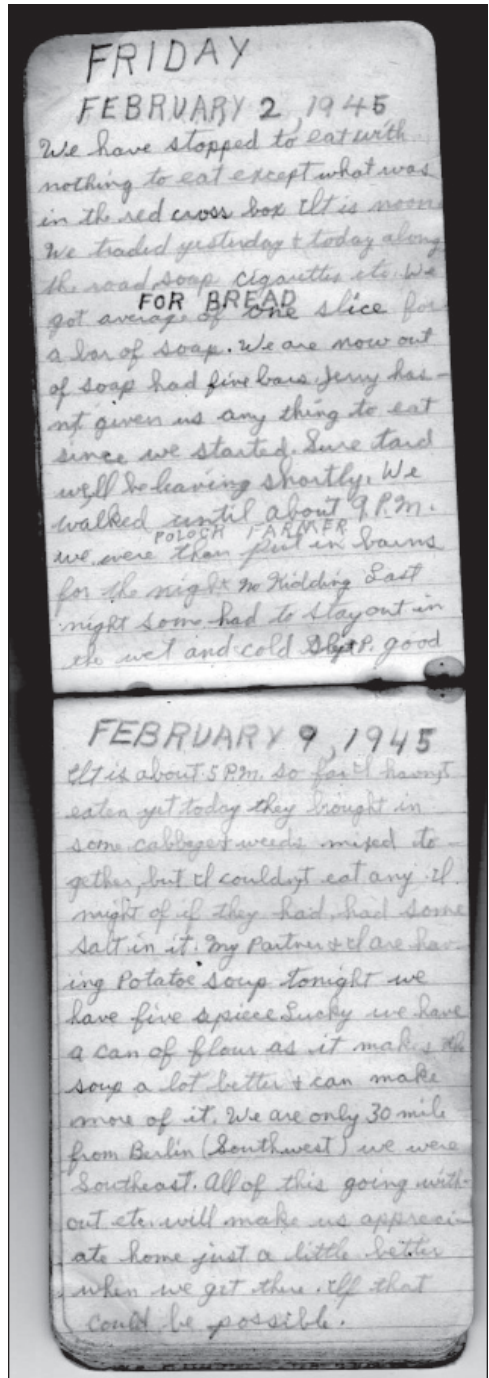 FRIDAY
FEBRUARY 2, 1945
We have stopped to eat with
nothing to eat except what was
in the red cross box It is noon
We traded yesterday & today along
the road soap cigarettes etc. We
FOR BREAD
got average of one slice for
a bar of soap. We are now out
of soap had five bars. Jerry has-
nt given us any thing to eat
since we started. Sure tard
we'll be leaving shortly. We
walked until about 9 P.M.
POLOCK FARMER
we were than put in barns
for the night no Kidding Last
night some had to stay out in
the wet and cold P. good
FEBRUARY 9, 1945
It is about 5 P.M. so far I havn't
eaten yet today they brought in
some cabbage & weeds mixed to-
gether, but I couldn't eat any. I
might of if they had, had some
salt in it. My Partner & I are hav-
ing Potatoe soup tonight we
have five apiece Lucky we have
a can of flour as it makes the
soup a lot better & can make
more of it. We are only 30 mile
from Berlin (Southwest) we were
Southeast. All of this going with-
out etc. will make us appreci-
ate home just a little better
when we get there. If that
could be possible.